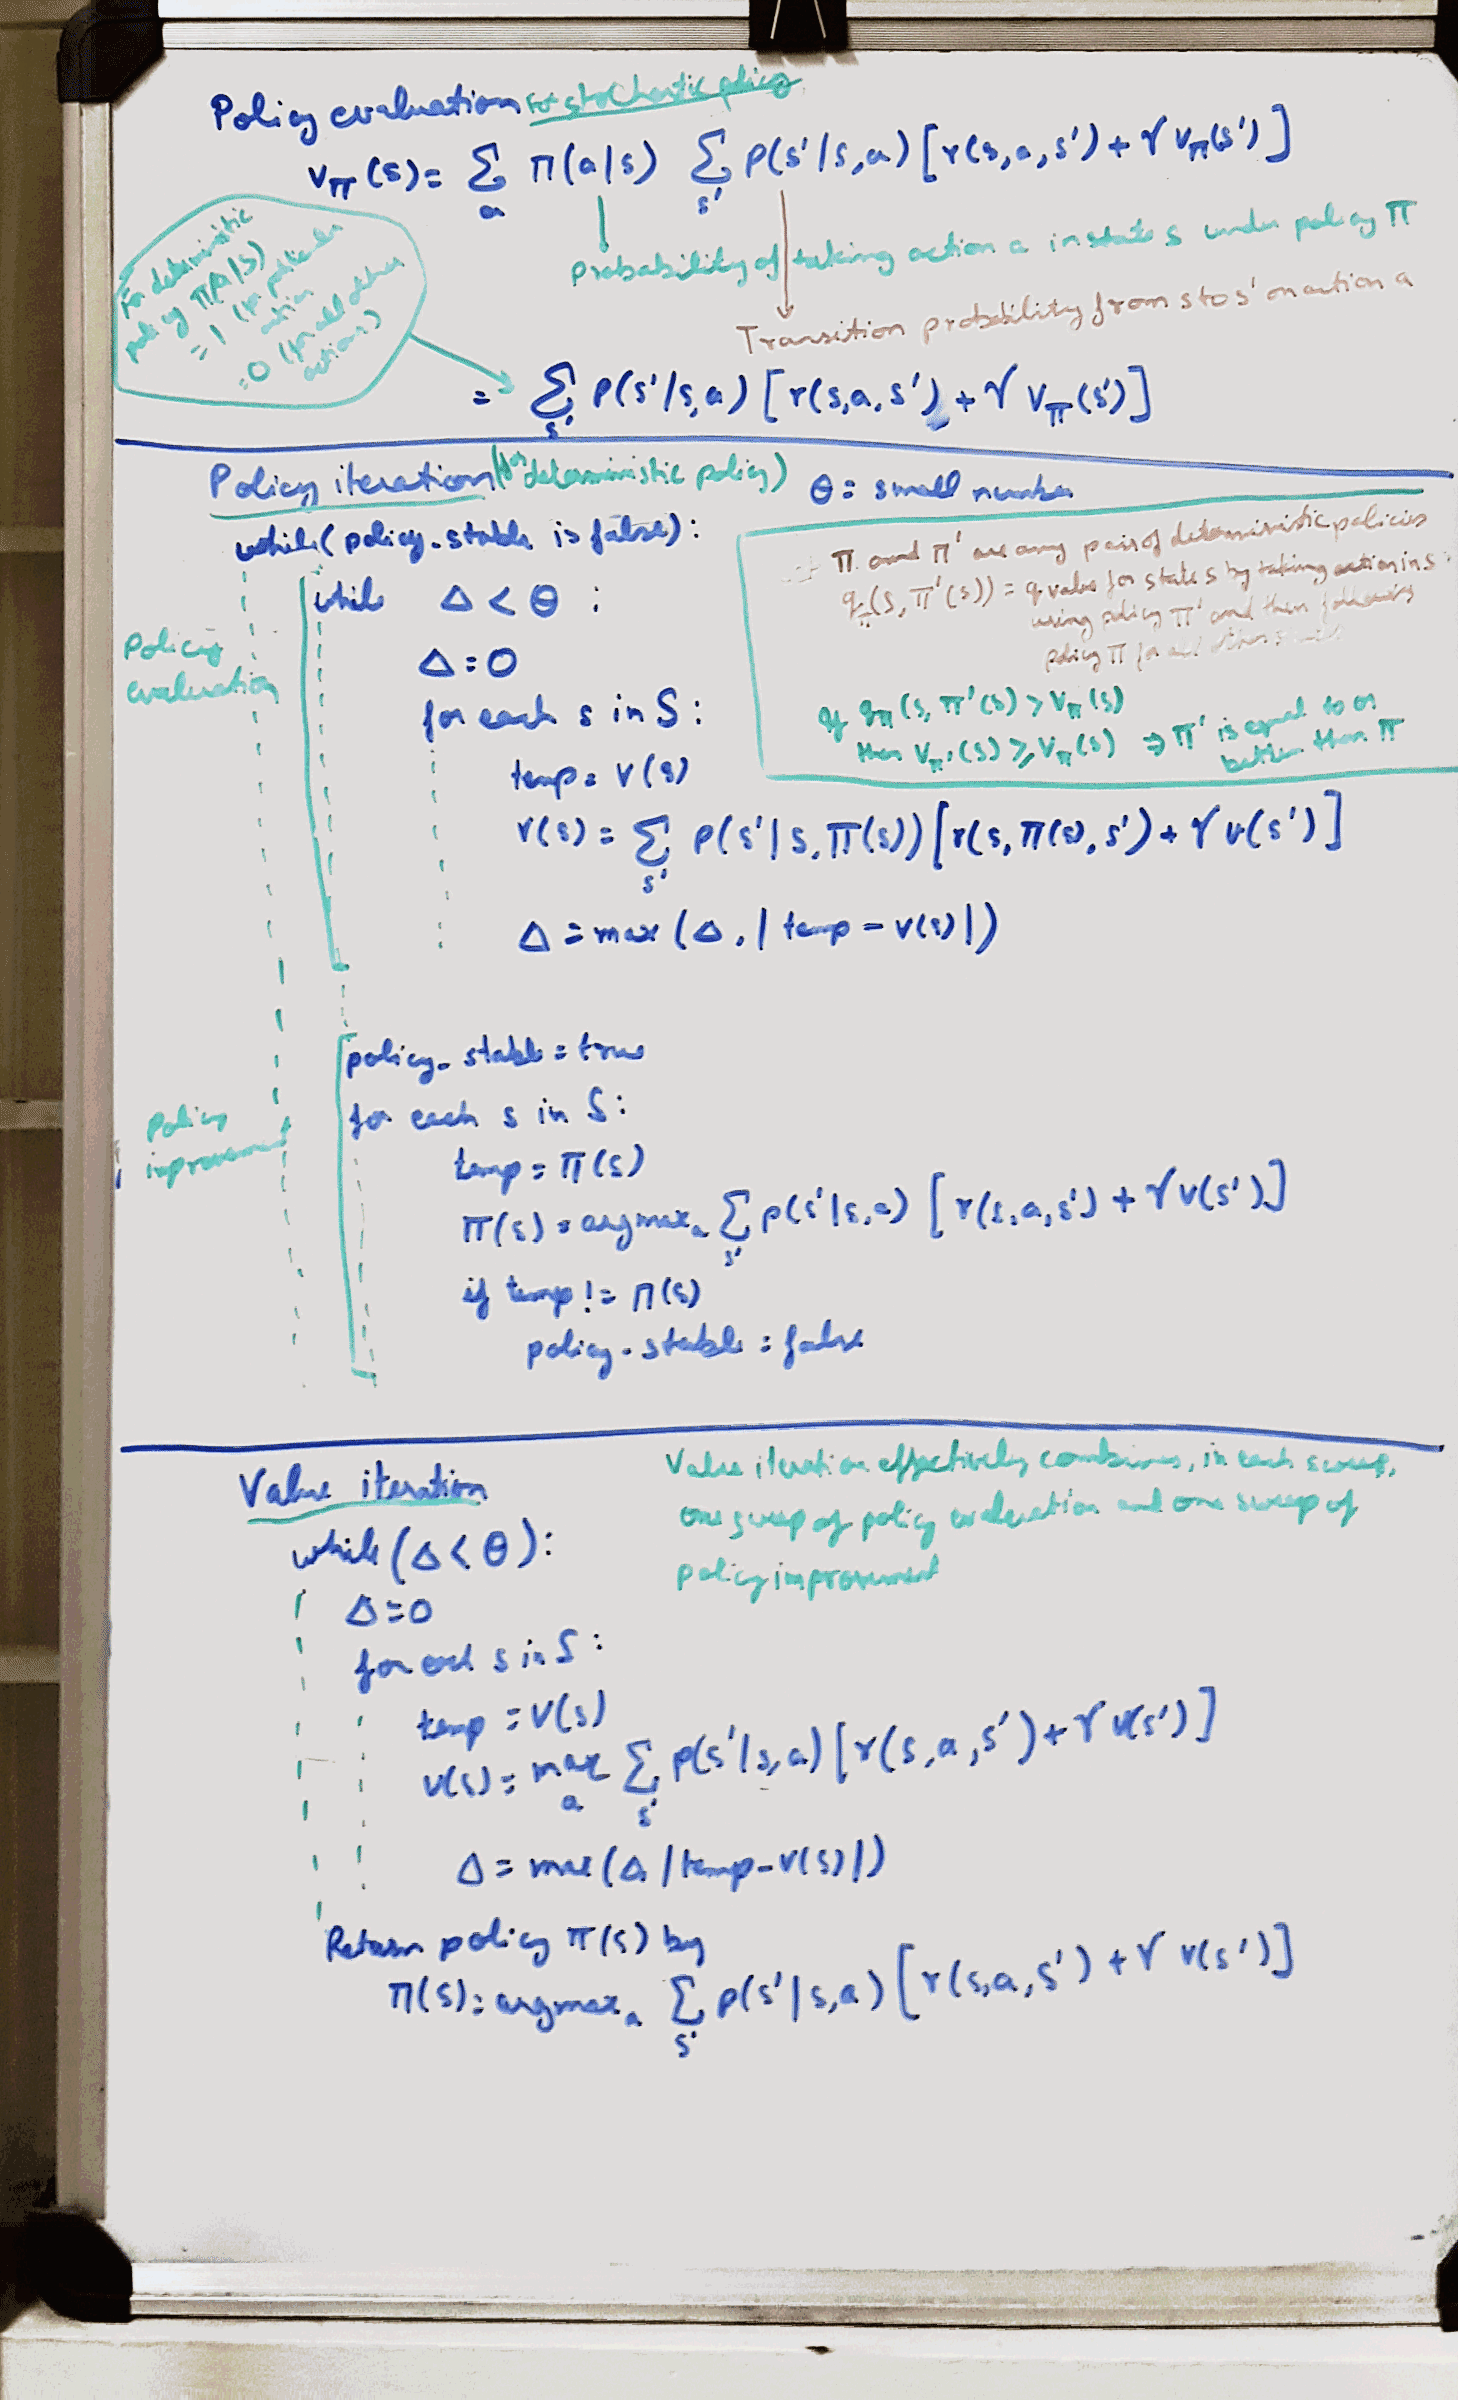 Policy evaluation for stochastic policy
Vπ(s) = Σa π(a|s) Σs' P(s'|s,a) [r(s,a,s') + γ Vπ(s')]
Probability of taking action a in state s under policy π
Transition probability from s to s' on action a
For deterministic
policy π(a|s)
= 1 (for particular
action
= 0 (for all other
actions)
= Σs' P(s'|s,a) [r(s,a,s') + γ Vπ(s')]
Policy iteration (for deterministic policy) θ = small number
while(policy-stable is false):
Policy
evaluation
while Δ < θ :
Δ = 0
for each s in S:
temp = V(s)
V(s) = Σs' P(s'|s,π(s)) [r(s,π(s),s') + γ v(s')]
Δ = max(Δ, |temp - v(s)|)
π and π' are any pair of deterministic policies
qπ(s, π'(s)) = q value for state s by taking action in s
using policy π' and then following
policy π for all other
If qπ(s, π'(s) > Vπ(s)
then Vπ'(s) ≥ Vπ(s) ⇒ π' is equal to or
better than π
Policy
improvement
policy-stable = true
for each s in S:
temp = π(s)
π(s) = argmaxa Σs' p(s'|s,a) [r(s,a,s') + γ v(s')]
if temp != π(s)
policy-stable = false
Value iteration
Value iteration effectively combines, in each sweep,
one sweep of policy evaluation and one sweep of
policy improvement
while(Δ < θ):
Δ = 0
for each s in S:
temp = V(s)
v(s) = max a Σs' P(s'|s,a) [r(s,a,s') + γ v(s')]
Δ = max(Δ, |temp - v(s)|)
Return policy π(s) by
π(s) = argmaxa Σs' p(s'|s,a) [r(s,a,s') + γ v(s')]